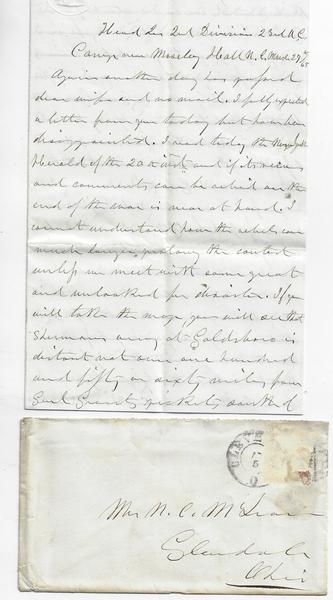 Head Qrs 2nd Division 23rd A.C.
Camp near Moseley Hall N.C. March 29th/65
Again another day has passed
dear wife and no mail. I fully expected
a letter from you today but have been
disappointed. I read today the New York
Herald of the 20th inst and if its news
and comments can be relied on the
end of the war is near at hand. I
cannot understand how the rebels can
much longer prolong the contest
unless we meet with some great
and unlooked for disaster. If you
will take the map you will see that
Shermans army at Goldsboro is
distant not over one hundred
and fifty or sixty miles from
Genl Grants pickets south of
Mrs N. C. McLean
Glendale
Ohio